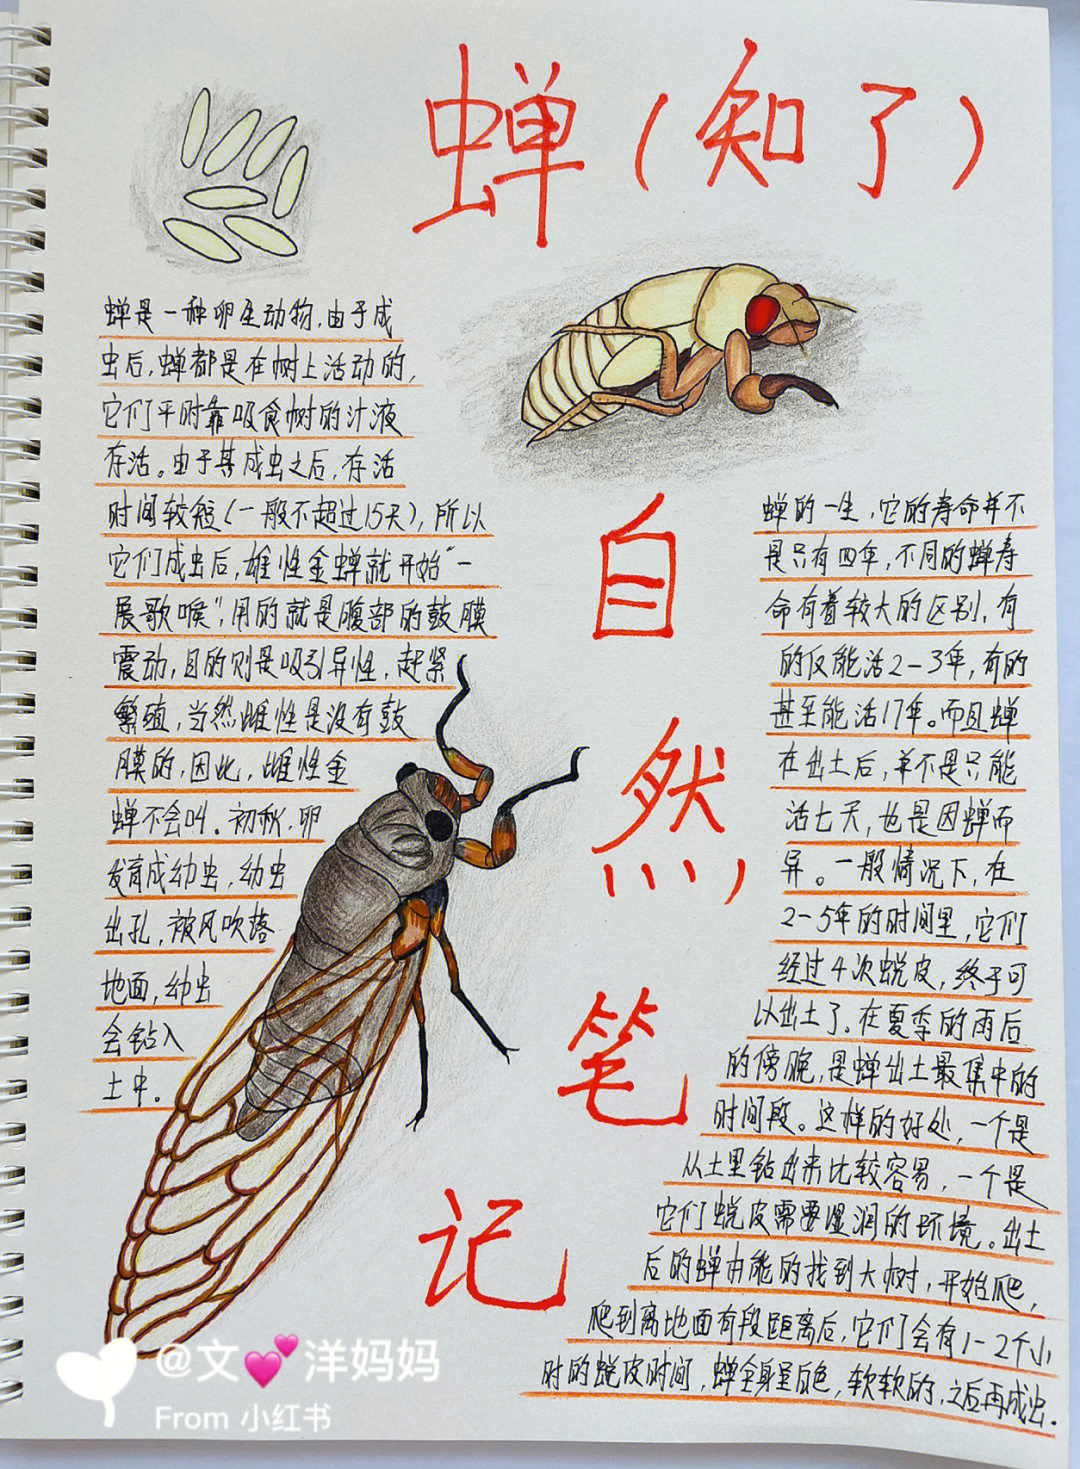 蝉（知了）
自然笔记
蝉是一种卵生动物，由于成
虫后，蝉都是在树上活动的，
它们平时靠吸食树的汁液
存活。由于其成虫之后，存活
时间较短（一般不超过15天），所以
它们成虫后，雄性金蝉就开始“一
展歌喉”，用的就是腹部的鼓膜
震动，目的则是吸引异性，赶紧
繁殖，当然雌性是没有鼓
膜的，因此，雌性金
蝉不会叫。初秋，卵
发育成幼虫，幼虫
出孔，被风吹落
地面，幼虫
会钻入
土中。
蝉的一生，它的寿命并不
是只有四年，不同的蝉寿
命有着较大的区别，有
的仅能活2-3年，有的
甚至能活17年。而且蝉
在出土后，单不是只能
活七天，也是因蝉而
异。一般情况下，在
2-5年的时间里，它们
经过4次蜕皮，终于可
以出土了。在夏季的雨后
的傍晚，是蝉出土最集中的
时间段。这样的好处，一个是
从土里钻出来比较容易，一个是
它们蜕皮需要湿润的环境。出土
后的蝉由能的找到大树，开始爬，
爬到离地面有段距离后，它们会有1-2个小
时的蜕皮时间，蝉全身呈白色，软软的，之后再成虫.
@文💕洋妈妈
From 小红书